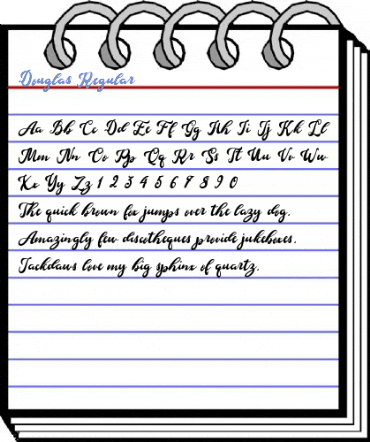 Douglas Regular
Aa Bb Cc Dd Ee Ff Gg Hh Ii Jj Kk Ll
Mm Nn Oo Pp Qq Rr Ss Tt Uu Vv Ww
Xx Yy Zz 1 2 3 4 5 6 7 8 9 0
The quick brown fox jumps over the lazy dog.
Amazingly few discotheques provide jukeboxes.
Jackdaws love my big sphinx of quartz.